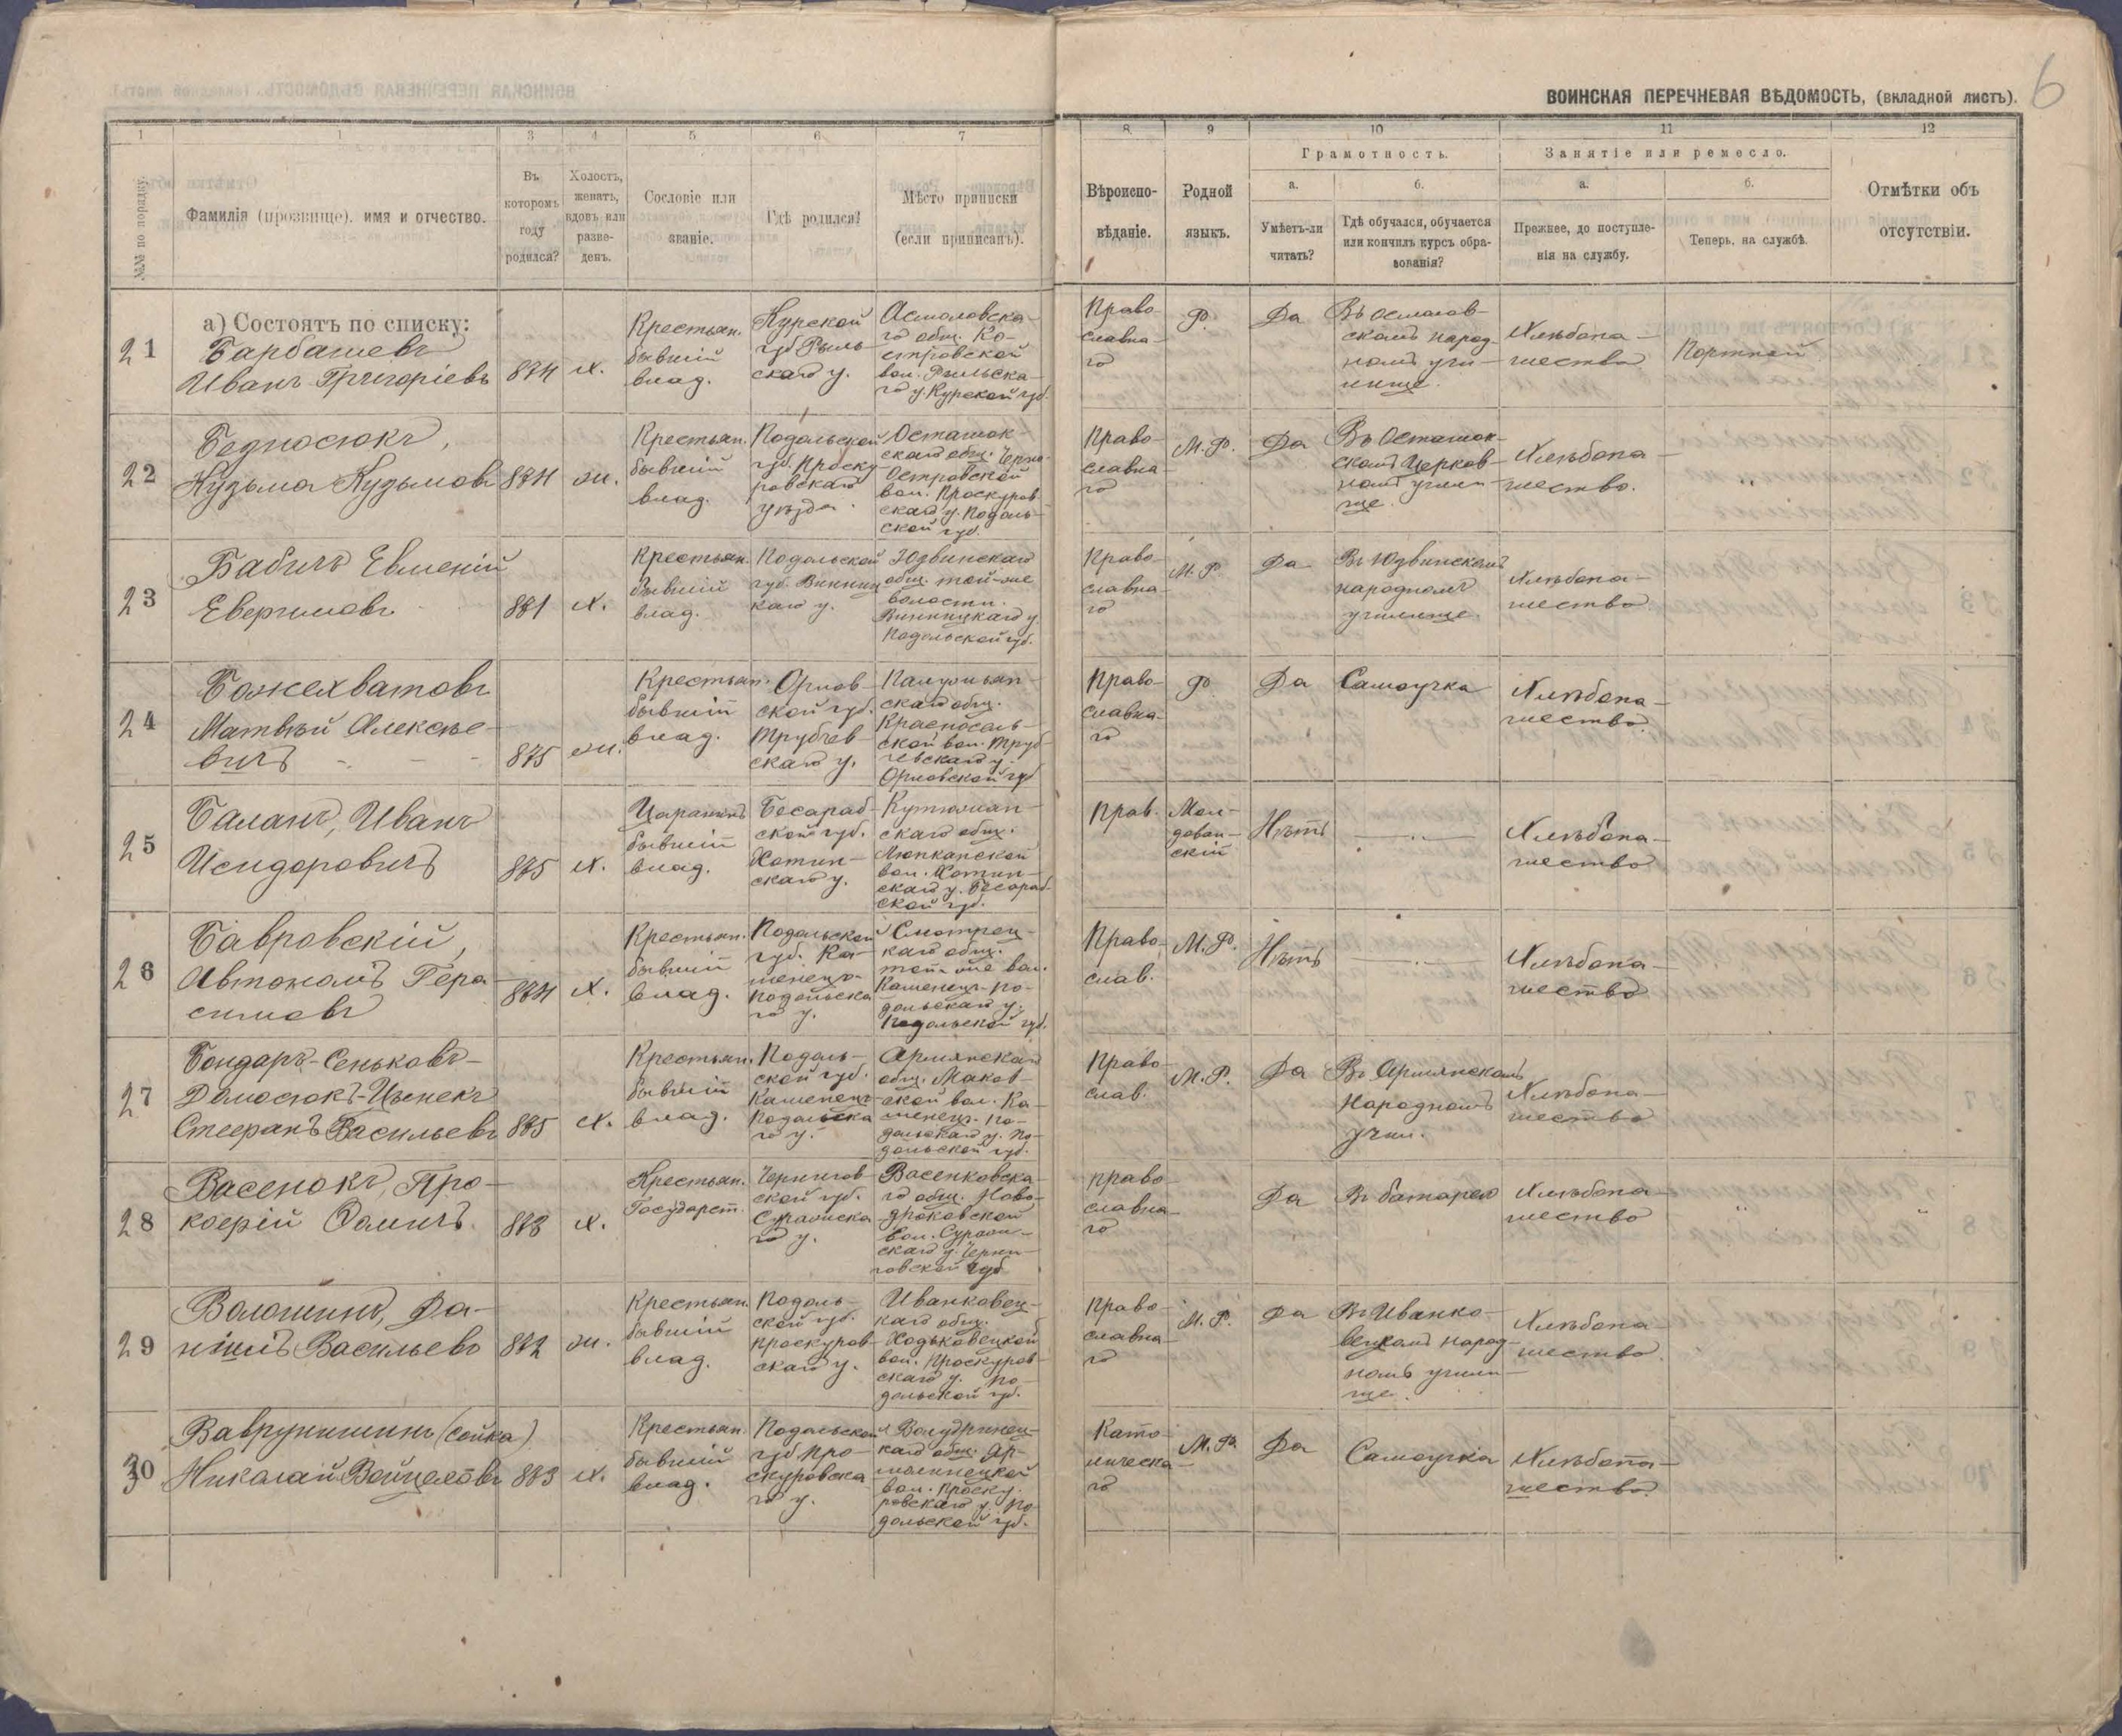 ВОИНСКАЯ ПЕРЕЧНЕВАЯ ВѢДОМОСТЬ, (вкладной листъ).
6
1
1
3
4
5
6
7
8
9
10
11
12
№№ по порядку.
Фамилія (прозвище), имя и отчество.
Въ
которомъ
году
родился?
Холостъ,
женатъ,
вдовъ или
разве-
денъ.
Сословіе или
званіе.
Гдѣ родился?
Мѣсто приписки
(если приписанъ).
Вѣроиспо-
вѣданіе.
Родной
языкъ.
Грамотность.
а.
Умѣетъ-ли
читать?
б.
Гдѣ обучался, обучается
или кончилъ курсъ обра-
зованія?
Занятіе или ремесло.
а.
Прежнее, до поступле-
нія на службу.
б.
Теперь, на службѣ.
Отмѣтки объ
отсутствіи.
а) Состоятъ по списку:
21
Барбашевъ
Иванъ Григоріевъ
874
х.
Крестьян.
бывшій
влад.
Курской
губ. Рыль-
скаго у.
Асмоловска-
го общ. Ко-
стровской
вол. Рыльска-
го у. Курской губ.
Право-
славна-
го
Р.
Да
Въ Осмолов-
скомъ народ-
номъ учи-
лище.
Хлѣбопа-
шество
Портной
22
Бедносюкъ,
Кузьма Кузьмовъ
874
ж.
Крестьян.
бывшій
влад.
Подольской
губ. Проску-
ровскаго
уѣзда.
Осташок-
скаго общ. Черно-
Островской
вол. Проскуров-
скаго у. Подоль-
ской губ.
Право-
славна-
го
М.Р.
Да
Въ Осташок-
скомъ Церков-
номъ учили-
ще.
Хлѣбопа-
шество.
23
Бабичъ Евменій
881
х.
Крестьян.
бывшій
влад.
Подольской
губ. Винниц-
каго у.
Юзвинскаго
общ. той-же
волости
Винницкаго у.
Подольской губ.
Право-
славна-
го
М.Р.
Да
Въ Юзвинскомъ
народномъ
училище.
Хлѣбопа-
шество
24
Божехватовъ
Матвѣй Алексѣе-
вичъ
875
ж.
Крестьян.
бывшій
влад.
Орлов-
ской губ.
Трубчев-
скаго у.
скаго общ.
Красносель-
ской вол. Труб-
чевскаго у.
Орловской губ.
Право-
славна-
го
Р.
Да
Самоучка
Хлѣбопа-
шество.
25
Баланъ, Иванъ
Исидоровичъ
875
х.
Царанинъ
бывшій
влад.
Бесараб-
ской губ.
Хотин-
скаго у.
скаго общ.
Липканской
вол. Хотин-
скаго у. Бесараб-
ской губ.
Прав.
Мол-
даван-
скій
Нѣтъ
Хлѣбопа-
шество
26
Бавровскій,
Автономъ Гера-
симовъ
874
х.
Крестьян.
бывшій
влад.
Подольской
губ. Ка-
менецъ-
Подольска-
го у.
Смотриц-
каго общ.
той-же вол.
Каменецъ-По-
дольскаго у.
Подольской губ.
Право-
слав.
М.Р.
Нѣтъ
Хлѣбопа-
шество
27
Бондаръ-Сеньковъ-
Стефанъ Васильевъ
885
х.
Крестьян.
бывшій
влад.
Подоль-
ской губ.
Каменецъ-
Подольска-
го у.
Армянскаго
общ. Маков-
ской вол. Ка-
менец. По-
дольскаго у. По-
дольской губ.
Право-
слав.
М.Р.
Да
Въ Армянскомъ
Народномъ
учил.
Хлѣбопа-
шество
28
Васенокъ, Про-
кофій Фомичъ
883
х.
Крестьян.
Государст.
Чернигов-
ской губ.
Суражска-
го у.
Васенковска-
го общ. Ново-
дроковской
вол. Сураж-
скаго у. Черни-
говской губ.
Право-
славна-
го
Да
Въ батарее
Хлѣбопа-
шество
29
Волошинъ, Да-
ніилъ Васильевъ
882
ж.
Крестьян.
бывшій
влад.
Подоль-
ской губ.
Проскуров-
скаго у.
Иванковец-
каго общ.
Ходьковецкой
вол. Проскуров-
скаго у. По-
дольской губ.
Право-
славна-
го
М.Р.
Да
Въ Иванко-
вецкомъ народ-
номъ учили-
ще.
Хлѣбопа-
шество.
30
Ваврунишинъ (сойка)
Николай Войцеховъ
883
х.
Крестьян.
бывшій
влад.
Подольской
губ. Про-
скуровска-
го у.
каго общ. Яр-
молинецкой
вол. Проску-
ровскаго у. По-
дольской губ.
Като-
лическа-
го
М.Р.
Да
Самоучка
Хлѣбопа-
шество.